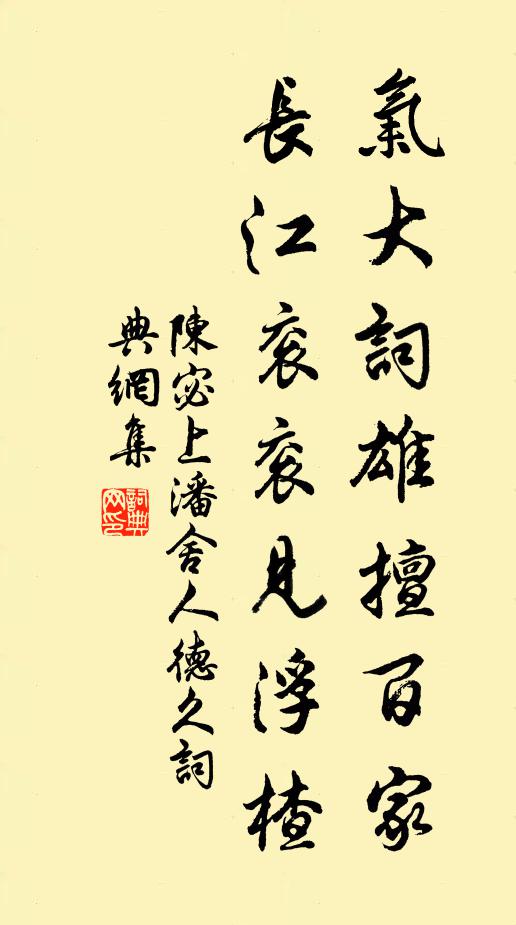 氣大詞雄擅百家
長江衮衮見浮楂
陳宓上潘舍人德久詞
典網集
詞典網印